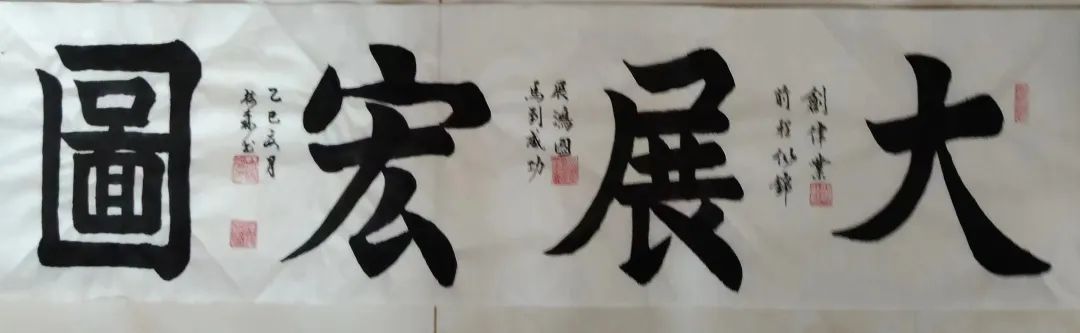 大展宏圖
創偉業
前程似錦
展鴻圖
馬到成功
乙巳亥月